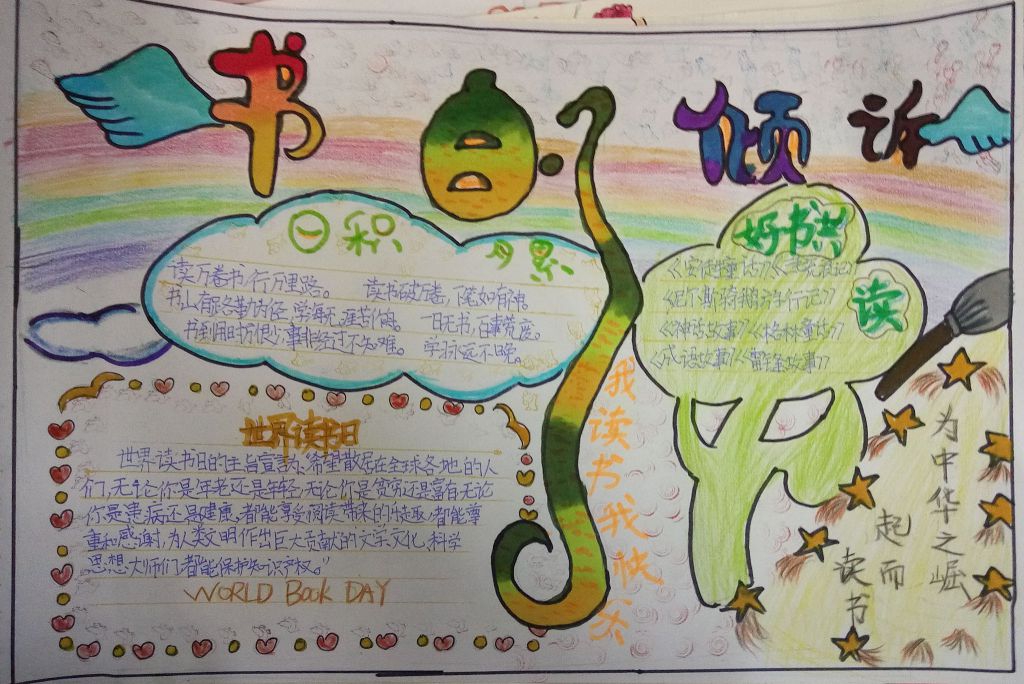 书的倾诉
日积月累
读万卷书,行万里路。 读书破万卷,下笔如有神。
书山有路勤为径,学海无涯苦作舟。 一日无书,百事荒废。
书到用时方恨少,事非经过不知难。 学永远不晚。
好书共读
《安徒生童话》
《尼尔斯骑鹅旅行记》
《神话故事》《格林童话》
《成语故事》《雷锋故事》
世界读书日
世界读书日的主旨宣言为:"希望散居在全球各地的人
们,无论你是年老还是年轻,无论你是贫穷还是富有,无论
你是患病还是健康,都能享受阅读带来的乐趣,都能尊
重和感谢,为人类文明作出巨大贡献的文学、文化、科学
思想大师们,都能保护知识产权。"
WORLD BOOK DAY
我读书我快乐
为中华之崛
起而
读书